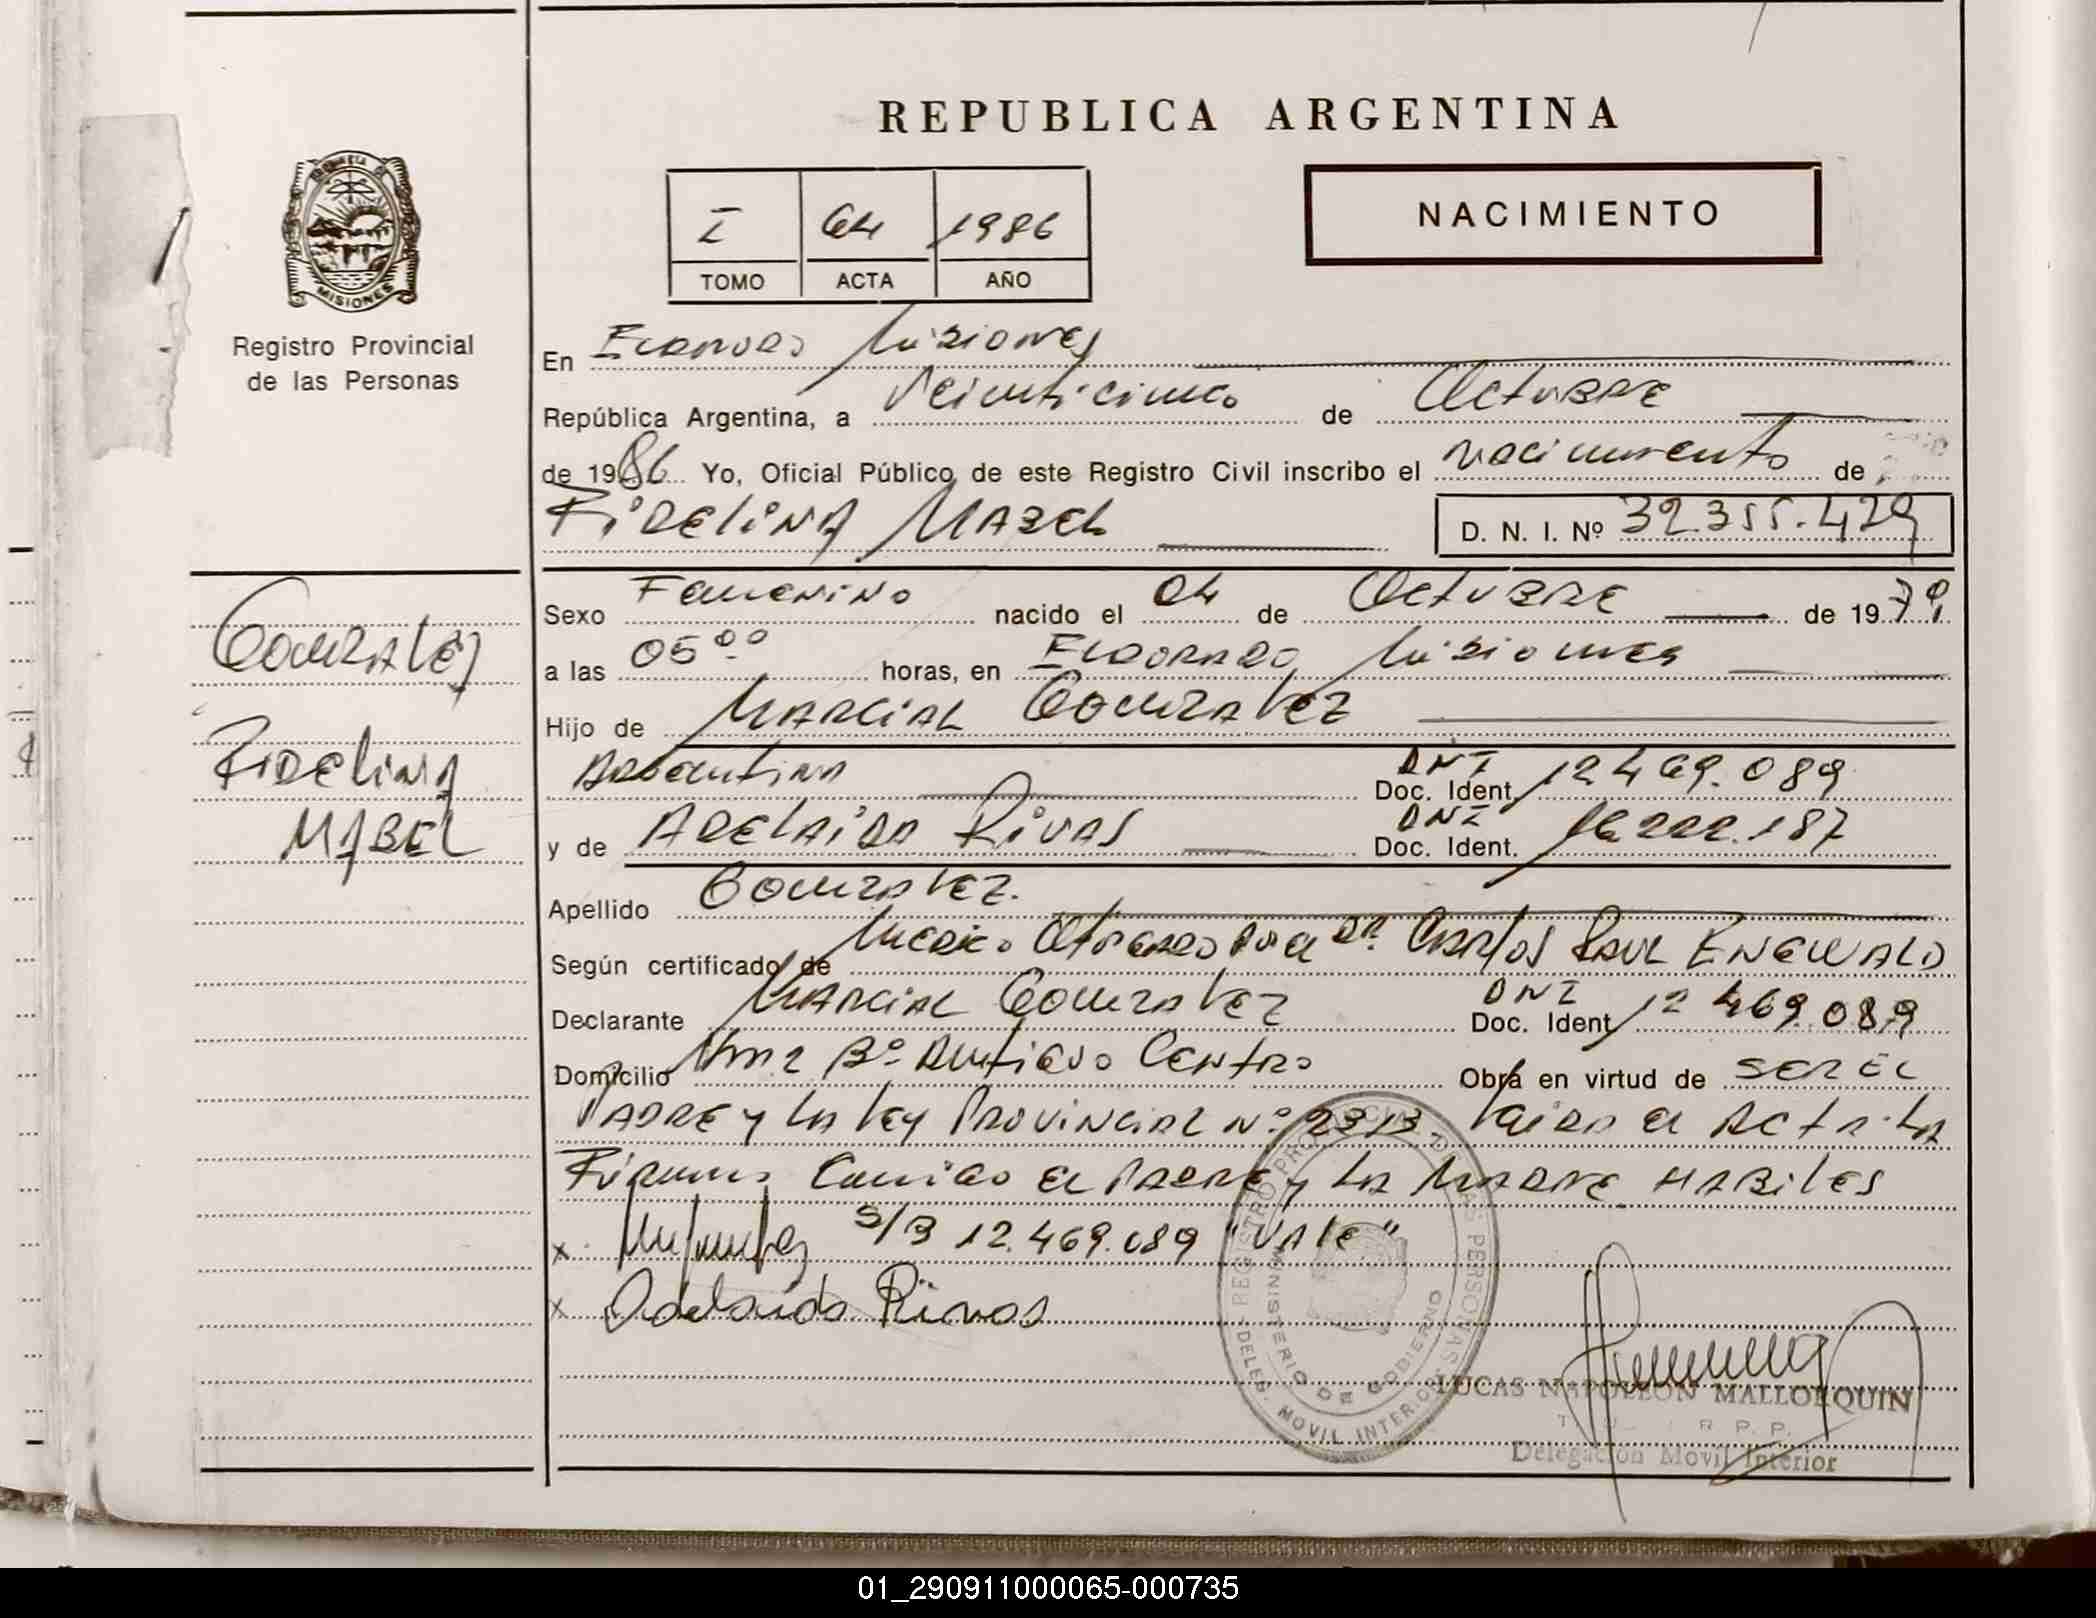 REPUBLICA ARGENTINA
I 64 1986
TOMO ACTA AÑO
NACIMIENTO
MISIONES
Registro Provincial
de las Personas
En Eldorado Misiones
República Argentina, a Veinticinco de Octubre
de 1986 Yo, Oficial Público de este Registro Civil inscribo el nacimiento de
FIDELINA MABEL D. N. I. Nº 32.355.429
Gonzalez
Fidelina
MABEL
Sexo Femenino nacido el 04 de Octubre de 1979
a las 05 00 horas, en Eldorado Misiones
Hijo de Marcial Gonzalez
Argentina DNI Doc. Ident. 12469.089
y de Adelaida Rivas DNI Doc. Ident. 16222.187
Apellido Gonzalez.
Según certificado de Medico Otorgado por el Dr. Carlos Raul
Declarante Marcial Gonzalez DNI Doc. Ident. 12469.089
Domicilio Bº Centro Obra en virtud de SER EL
PADRE y LA Ley Provincial Nº 2313. Leida el Acta. La
Firman Conmigo el Padre y La Madre HABiLES
x S/B 12.469.089 "VALE"
x Adelaida Rivas
REGISTRO PROVINCIAL DE LAS PERSONAS
MINISTERIO DE GOBIERNO
DELEG. MOVIL INTERIOR
LUCAS NAPOLEON MALLORQUIN
R. P. P.
Delegación Movil Interior
01_290911000065-000735